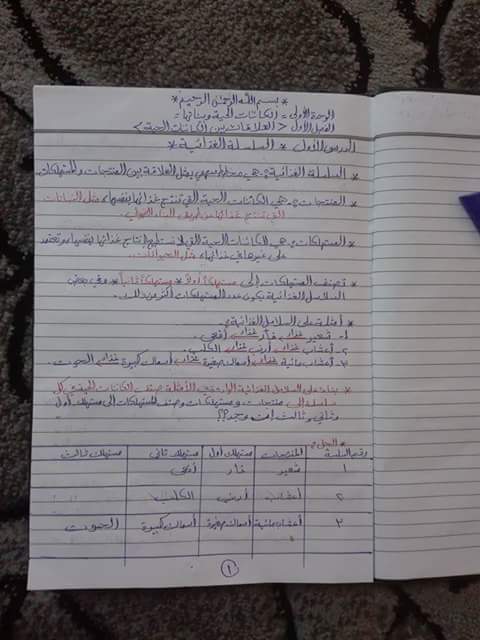 * بسم الله الرحمن الرحيم *
الوحدة الأولى = الكائنات الحية وبيئاتها =
الفصل الأول < العلاقات بين الكائنات الحية >
الدرس الأول * السلسلة الغذائية *
* السلسلة الغذائية: هي مخطط سهمي يمثل العلاقة بين المنتجات والمستهلكات
* المنتجات: هي الكائنات الحية التي تنتج غذائها بنفسها مثل النباتات
التي تنتج غذائها عن طريق البناء الضوئي.
* المستهلكات: هي الكائنات الحية التي لا تستطيع إنتاج غذائها بنفسها وتعتمد
على غيرها في غذائها مثل الحيوانات.
* تصنف المستهلكات إلى مستهلك أول * مستهلك ثاني * وفي بعض
السلاسل الغذائية يكون عدد المستهلكات أكثر من ذلك.
* أمثلة على السلاسل الغذائية:
١- شعير غذاء فأر غذاء أفعى.
٢- أعشاب غذاء أرنب غذاء الكلب.
٣- أعشاب مائية غذاء أسماك صغيرة غذاء أسماك كبيرة غذاء الحوت.
* بناء على السلاسل الغذائية الواردة في الأمثلة صنف الكائنات الحية في كل
سلسلة إلى منتجات و مستهلكات وصنف المستهلكات إلى مستهلك أول
وثاني وثالث إن وجد؟؟
* الحل:
رقم السلسلة المنتجات مستهلك أول مستهلك ثاني مستهلك ثالث
١ شعير فأر أفعى
٢ أعشاب أرنب الكلب
٣ أعشاب مائية أسماك صغيرة أسماك كبيرة الحوت
١